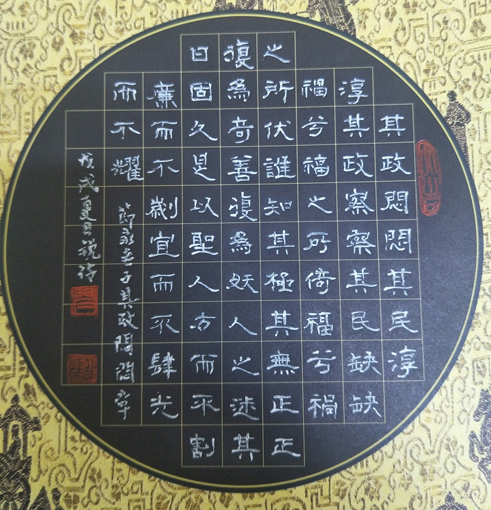 其政悶悶其民淳
淳其政察察其民缺缺
福兮福之所倚福兮禍
之所伏誰知其極其無正正
復為奇善復為妖人之迷其
日固久是以聖人方而不割
廉而不劌宜而不肆光
而不耀 節录老子其政悶悶章
戊戌夏月